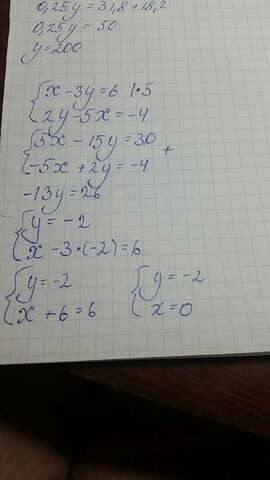 0,25y = 31,8 + 18,2
0,25y = 50
y = 200
{ x - 3y = 6 | · 5
{ 2y - 5x = -4
{ 5x - 15y = 30
{ -5x + 2y = -4 +
-13y = 26
{ y = -2
{ x - 3 · (-2) = 6
{ y = -2
{ x + 6 = 6
{ y = -2
{ x = 0